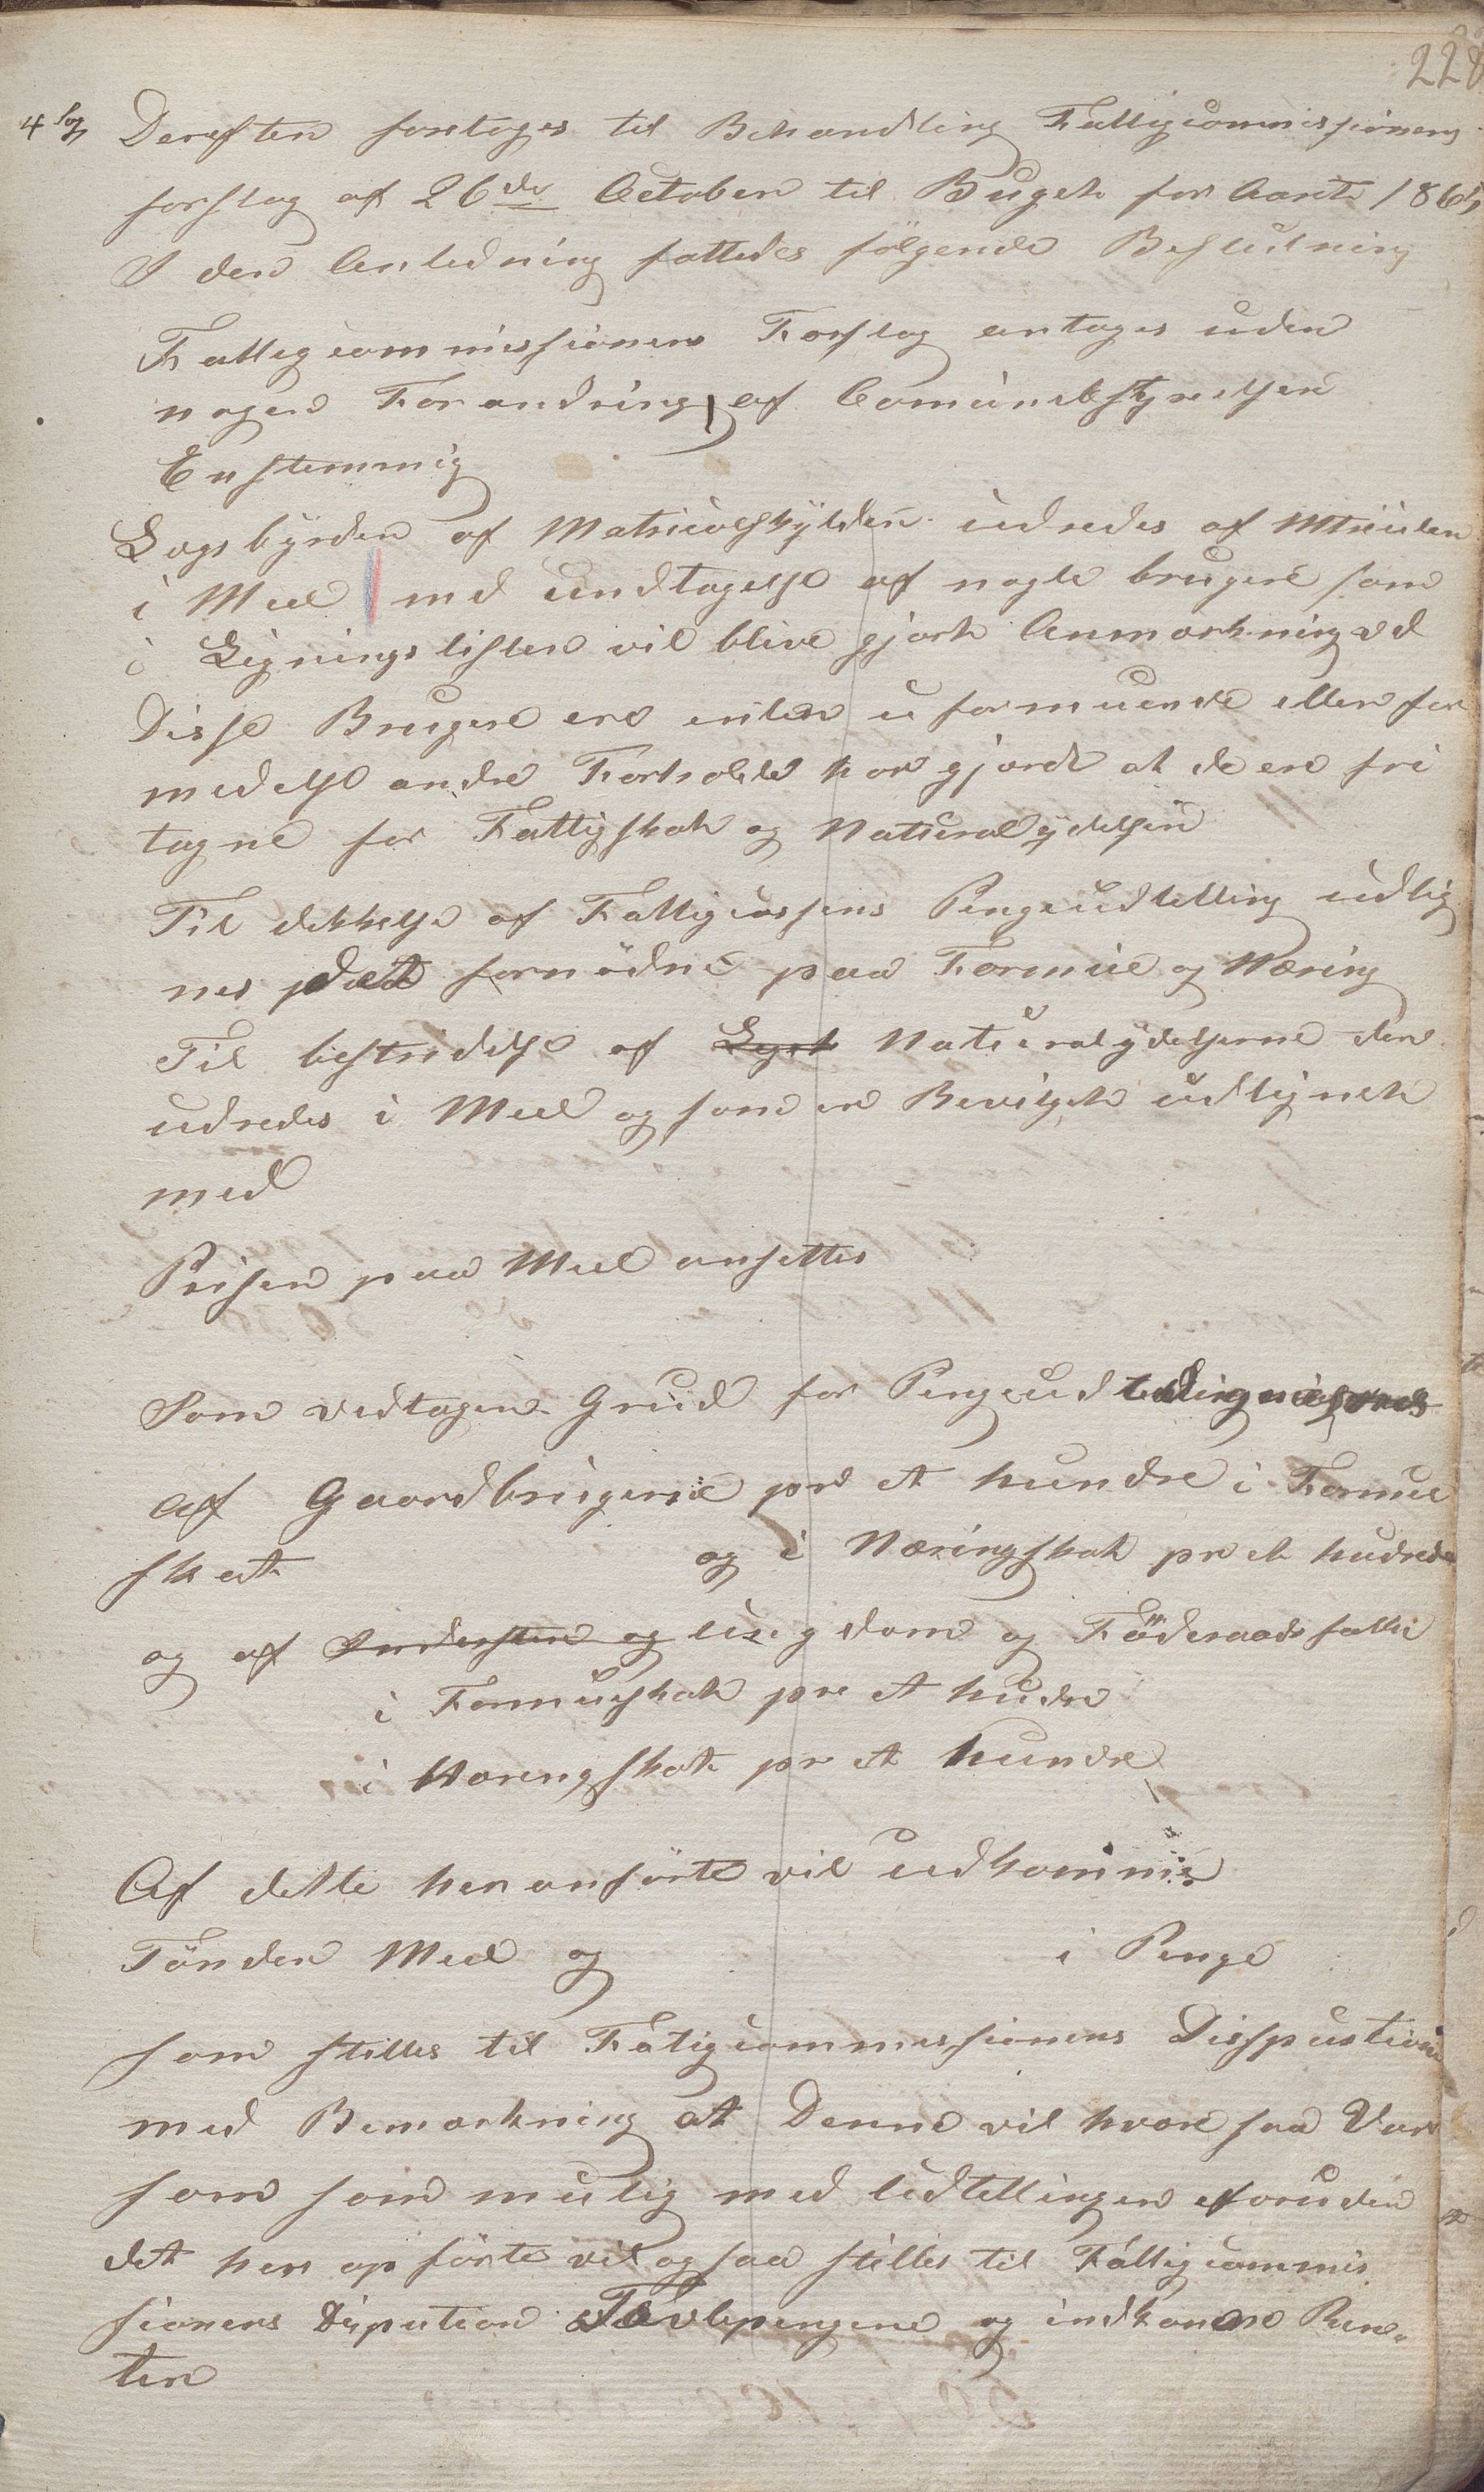 228
4 Sag Derefter foretoges til Behandling Fattigcommissionens
forslag af 26de October til Buget for Aaret 1865
I den Anledning fattedes følgende Beslutning
Fattigcommissionens Forslag antages uden
nogen Forandring af Comunebstyrelsen
Enstemmig
Lægsbyrden af Matriculskylden udredes af Mtriculen
i Meel med undtagelse af nogle brugere som
i Ligningslisten vil blive gjort Anmærkning ved
Disse Brugere ere enten uformuende eller for
medelse andre Forholde har gjordt at de ere fri
tagne for Fattigskat og Naturalydelsen
Til dekkelse af Fattigcassens Pengeudtelling udlig
nes det fornödne paa Formue og Næring
Til bestridelse af Naturalydelserne der
udredes i Meel og som er Bevilget udlignet
med
Prisen paa Meel ansettes
Som vedtagen Grund for Pengeud
af Gaardbrugerne pr et hundre i Formue
skat og i Næringskat pr et hudrede
og af Inderster og ungdom og Föderaadsfolk
i Formuskat pr et hudre
i Næringskat pr et hundre
Af dette her anförte vil udkomme
Tönder Meel og i Penge
som stilles til Fatigcommissionens Disspustion
med Bemærkning at Denne vil hvære saa Var
som som mulig med Udtellingen foruden
det her opförte vil ogsaa stilles til Fattigcommis
sionens Dispution Tavlepengene og indkomne Ren-
ter